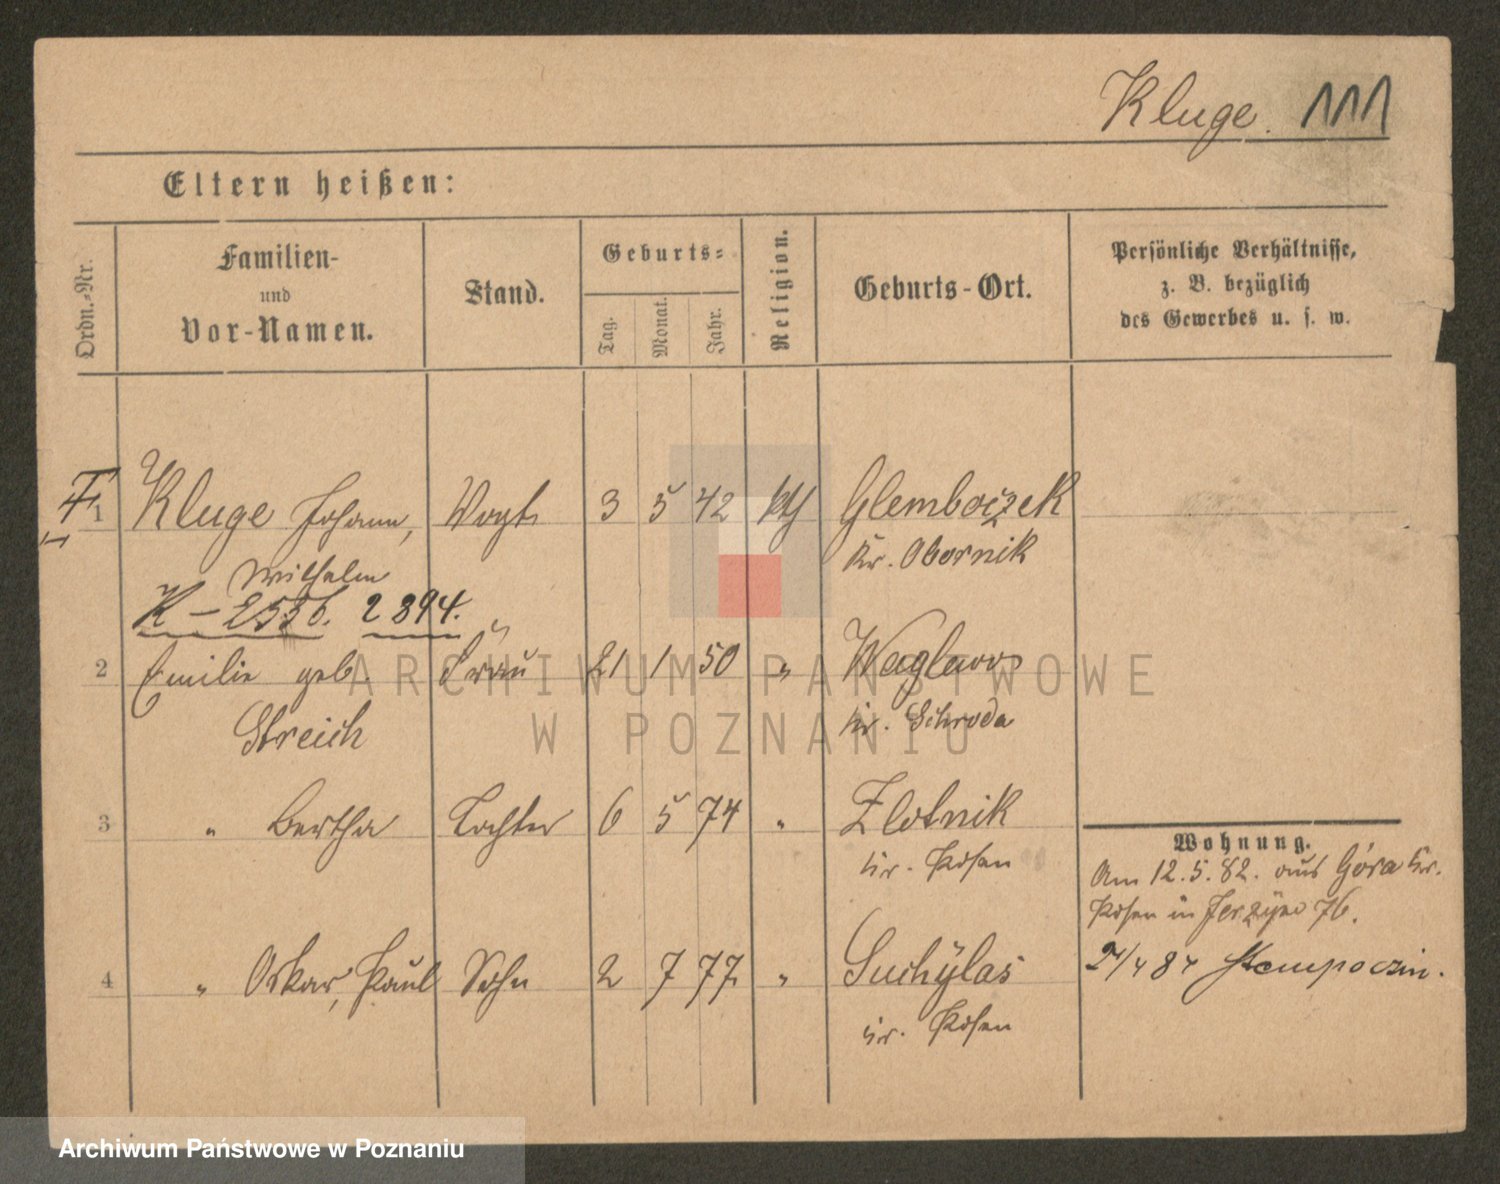 Kluge. 111
Eltern heißen:
Ordn.-Nr.
Familien-
und
Vor-Namen.
Stand.
Geburts-
Tag.
Monat.
Jahr.
Religion.
Geburts-Ort.
Persönliche Verhältnisse,
z. B. bezüglich
des Gewerbes u. s. w.
1 Kluge Johann, Vogt 3 5 42 kth Glemboczek
Wilhelm Kr. Obornik
K – 2556. 2894.
2 Emilie geb. Frau 21 1 50 „
Streich Kr. Schroda
3 „ Bertha Tochter 6 5 74 „ Zlotnik
Kr. Posen
Wohnung.
Am 12.5.82. aus Góra Kr.
Posen in 76.
4 „ Oskar, Paul Sohn 2 7 77 „ Suchÿlas
Kr. Posen
ARCHIWUM PAŃSTWOWE
W POZNANIU
Archiwum Państwowe w Poznaniu